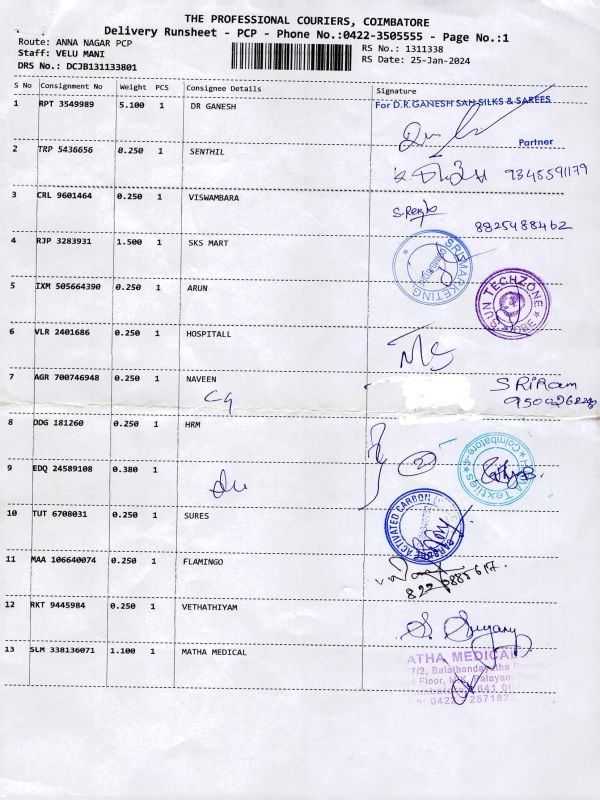 THE PROFESSIONAL COURIERS, COIMBATORE
Delivery Runsheet - PCP - Phone No.:0422-3505555 - Page No.:1
Route: ANNA NAGAR PCP
RS No.: 1311338
Staff: VELU MANI
RS Date: 25-Jan-2024
DRS No.: DCJB131133801
S No Consignment No Weight PCS Consignee Details Signature
1 RPT 3549989 5.100 1 DR GANESH
For D.R.GANESH SAH SILKS & SAREES
Partner
2 TRP 5436656 0.250 1 SENTHIL
9345591179
3 CRL 9601464 0.250 1 VISWAMBARA
8825488462
4 RJP 3283931 1.500 1 SKS MART
SRI MARKETING
5 IXM 505664390 0.250 1 ARUN
SUN TECHZONE
6 VLR 2401686 0.250 1 HOSPITALL
7 AGR 700746948 0.250 1 NAVEEN
SRiRam
8 DDG 181260 0.250 1 HRM
Textiles Coimbatore-4
9 EDQ 24589108 0.380 1
10 TUT 6708031 0.250 1 SURES
ACTIVATED CARBON
11 MAA 106640074 0.250 1 FLAMINGO
12 RKT 9445984 0.250 1 VETHATHIYAM
13 SLM 338136071 1.100 1 MATHA MEDICAL
ATHA MEDICAL
7/2, Balathandayutha
Floor, M.K. Palayam
641 0
0422 257182